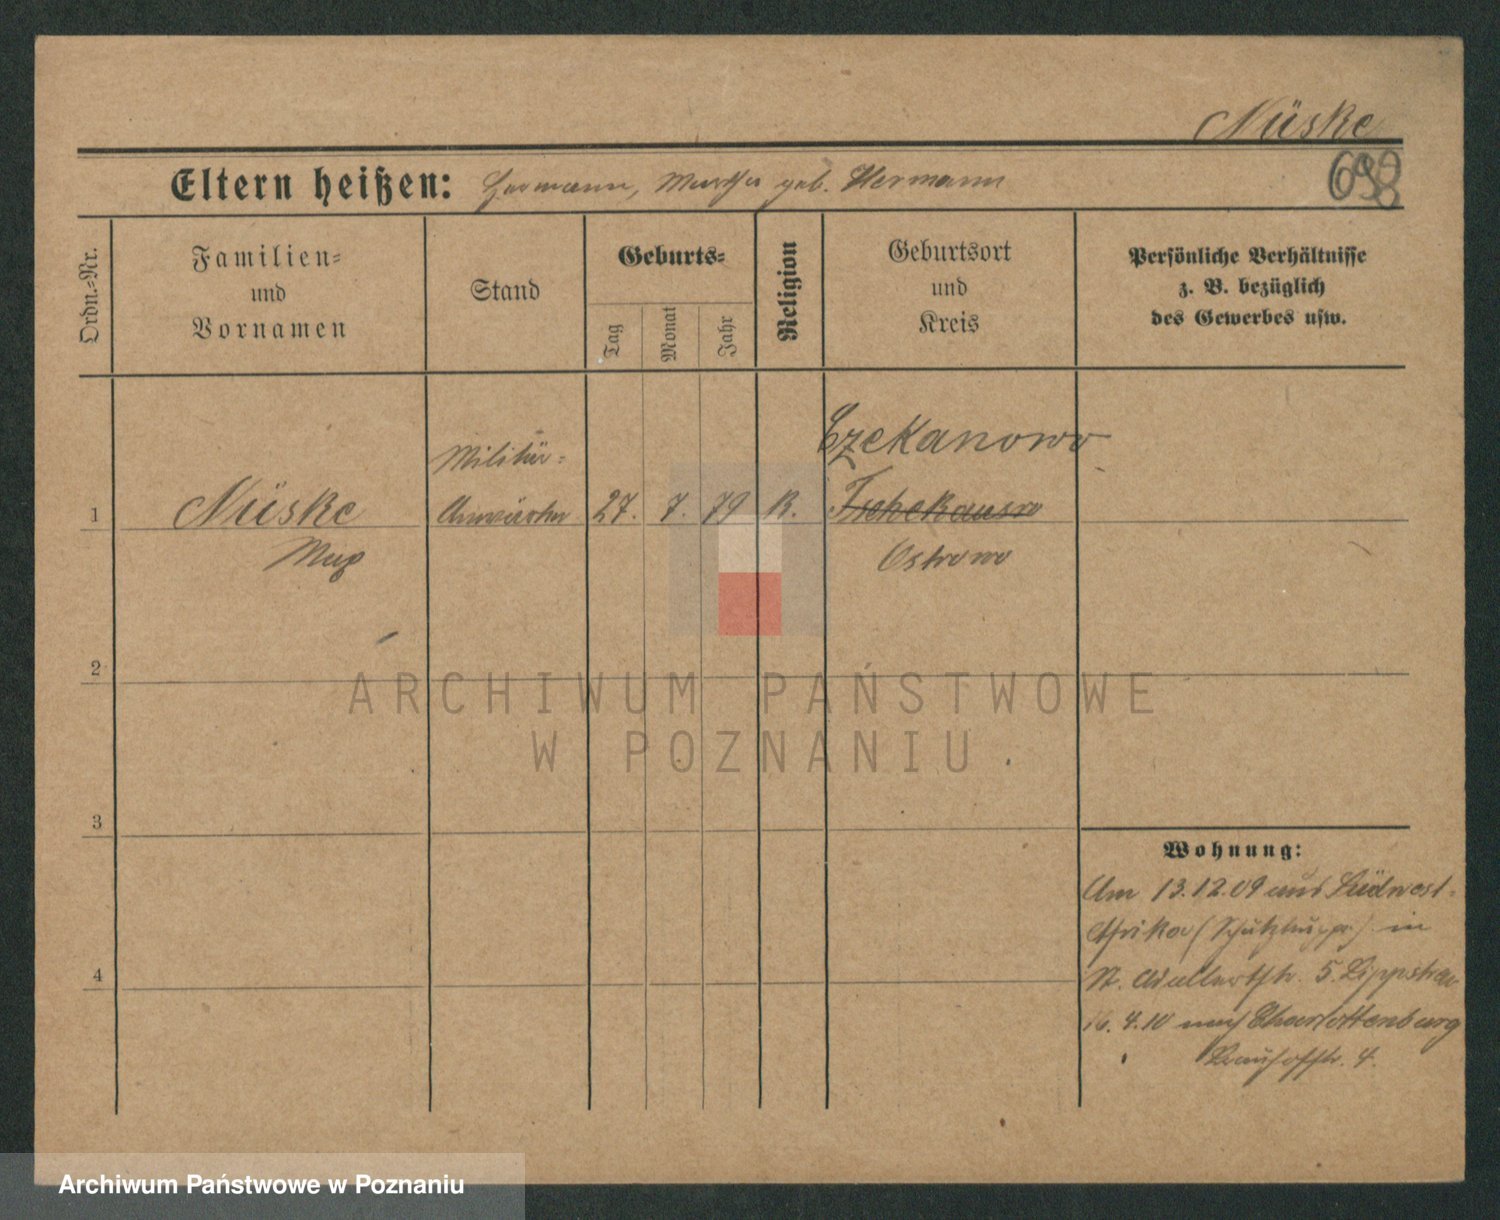 Nüske
698
Eltern heißen: Hermann, Martha geb. Hermann
Ordn.-Nr.
Familien-
und
Vornamen
Stand
Geburts-
Tag
Monat
Jahr
Religion
Geburtsort
und
Kreis
Persönliche Verhältnisse
z. B. bezüglich
des Gewerbes usw.
Czekanowo
Militär-
1 Nüske Anwärter 27. 7. 79 K.
Max Ostrowo
2
ARCHIWUM PAŃSTWOWE
W POZNANIU
3
Wohnung:
Am 13.12.09 aus Südwest-
Afrika (Schutztruppe) in
St. Adalbertstr. 5.
4
16.4.10 nach Charlottenburg
4.
Archiwum Państwowe w Poznaniu